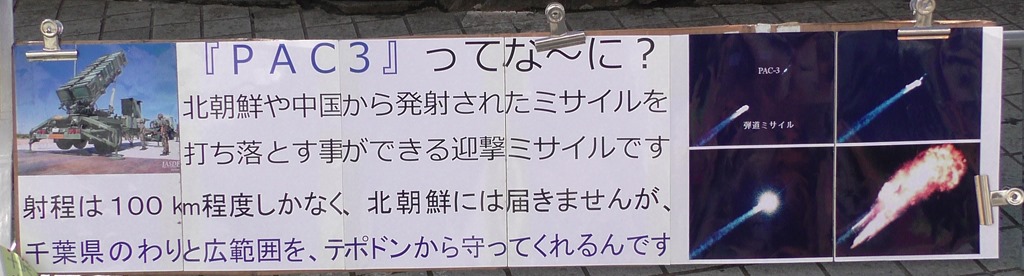 『PAC3』ってな～に？
北朝鮮や中国から発射されたミサイルを
打ち落とす事ができる迎撃ミサイルです
射程は100km程度しかなく、北朝鮮には届きませんが、
千葉県のわりと広範囲を、テポドンから守ってくれるんです
PAC-3
弾道ミサイル